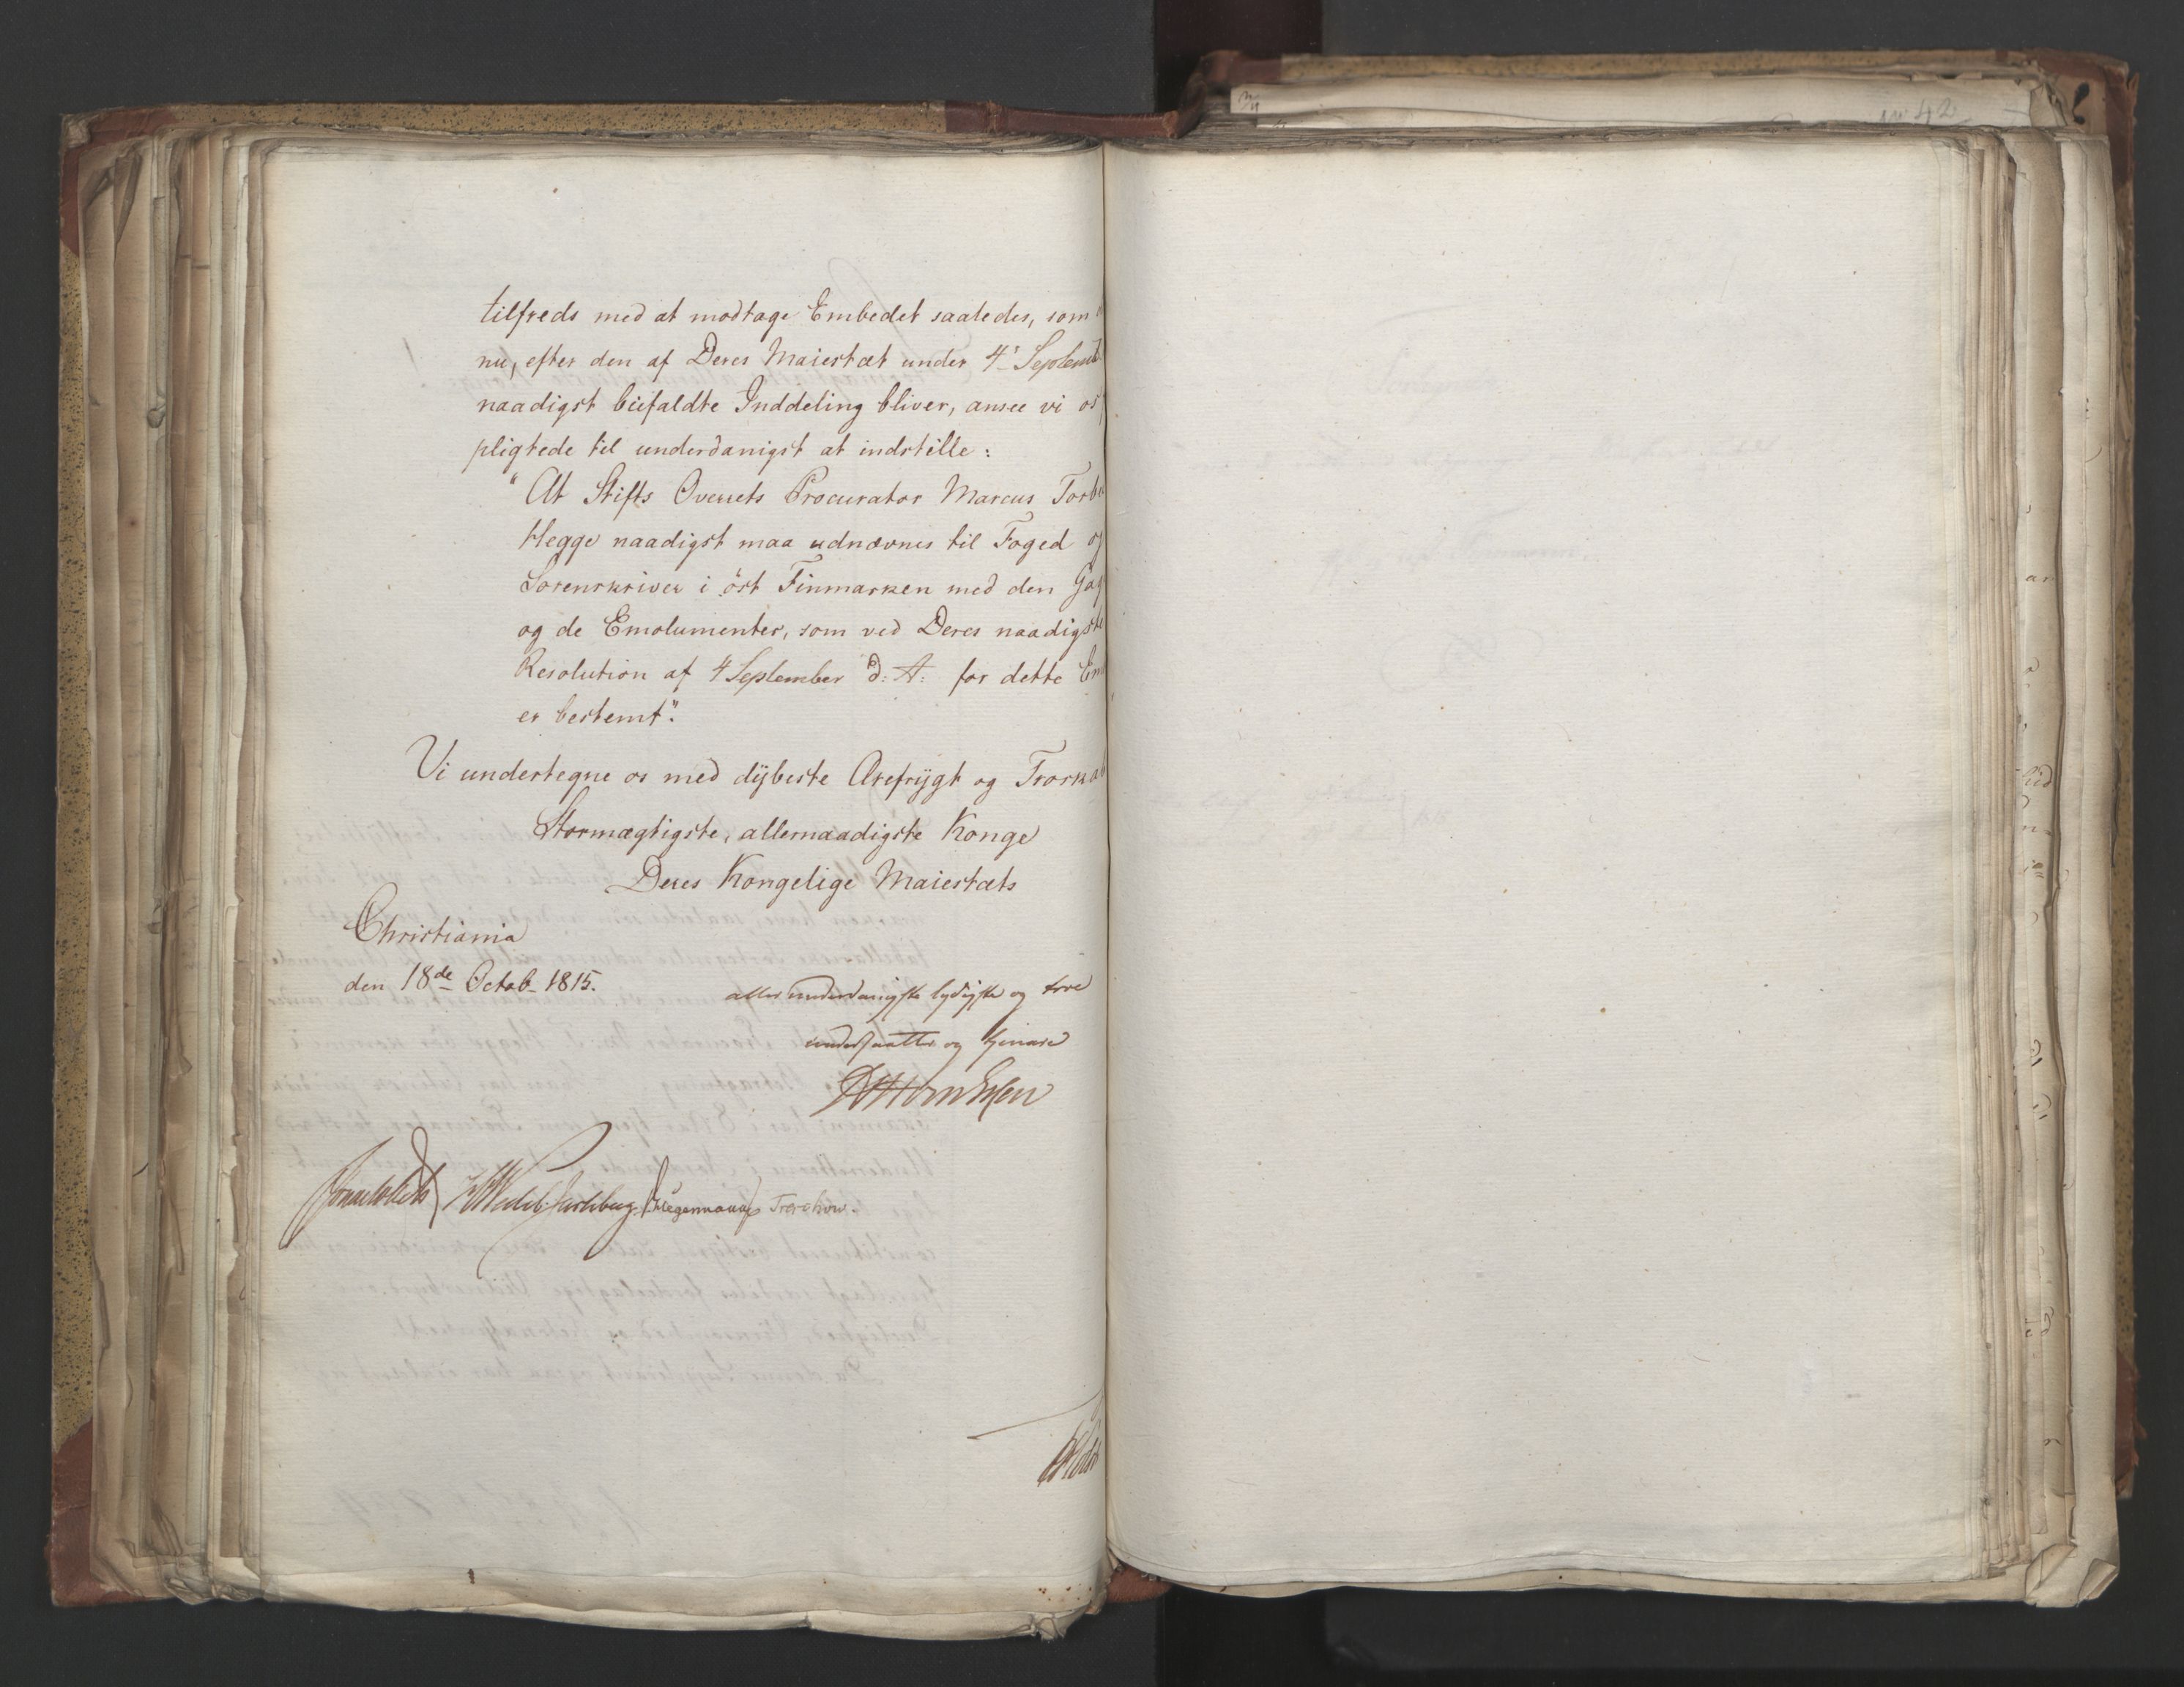 tilfreds med at modtage Embedet saaledes, som
nu, efter den af Deres Maiestæt under 4de Septemb
naadigst biefaldte Inddeling bliver, ansee vi os
pligtede til underdanigst at indstille:
"At Stifts Overrets Procurator Marcus Torb
Hegge naadigst maa udnævnes til Foged og
Sorenskriver i öst Finmarken med den Gag
og de Emolumenter, som ved Deres naadigste
Resolution af 4 September d: A: for dette Em
er bestemt".
Vi undertegne os med dÿbeste Ærefrÿgt og Troskab
Stormægtigste, allernaadigste Konge
Deres Kongelige Maiestæts
Christiania
den 18de Octob. 1815.
allerunderdanigste lydigste og troe
undersaatter og tjenere
Sommerhielm Wedel Jarlsberg Krieger Treschow.
No 42